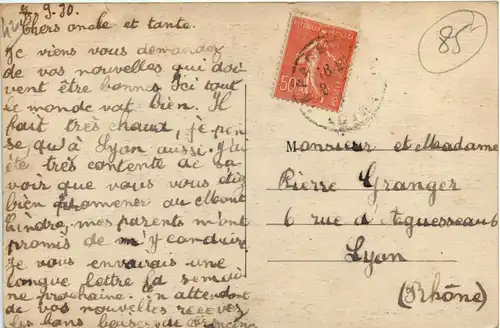 7.9.30.
Chers oncle et tante.
Je viens vous demander
de vos nouvelles qui doi-
vent être bonnes. Ici tout
le monde vat bien. Il
fait très chaux, je pen-
se qu'à Lyon aussi. J'ai
été très contente de sa-
voir que vous vous êtes
bien promener au Mont
Cindre, mes parents m'ont
promis de m'y conduire
Je vous envairais une
longue lettre la semai-
ne prochaine. En attendant
de vos nouvelles recevez
les bons baisers de
85
50
Monsieur et Madame
Pierre Granger
6 rue d'Aguesseau 6
Lyon
(Rhône)